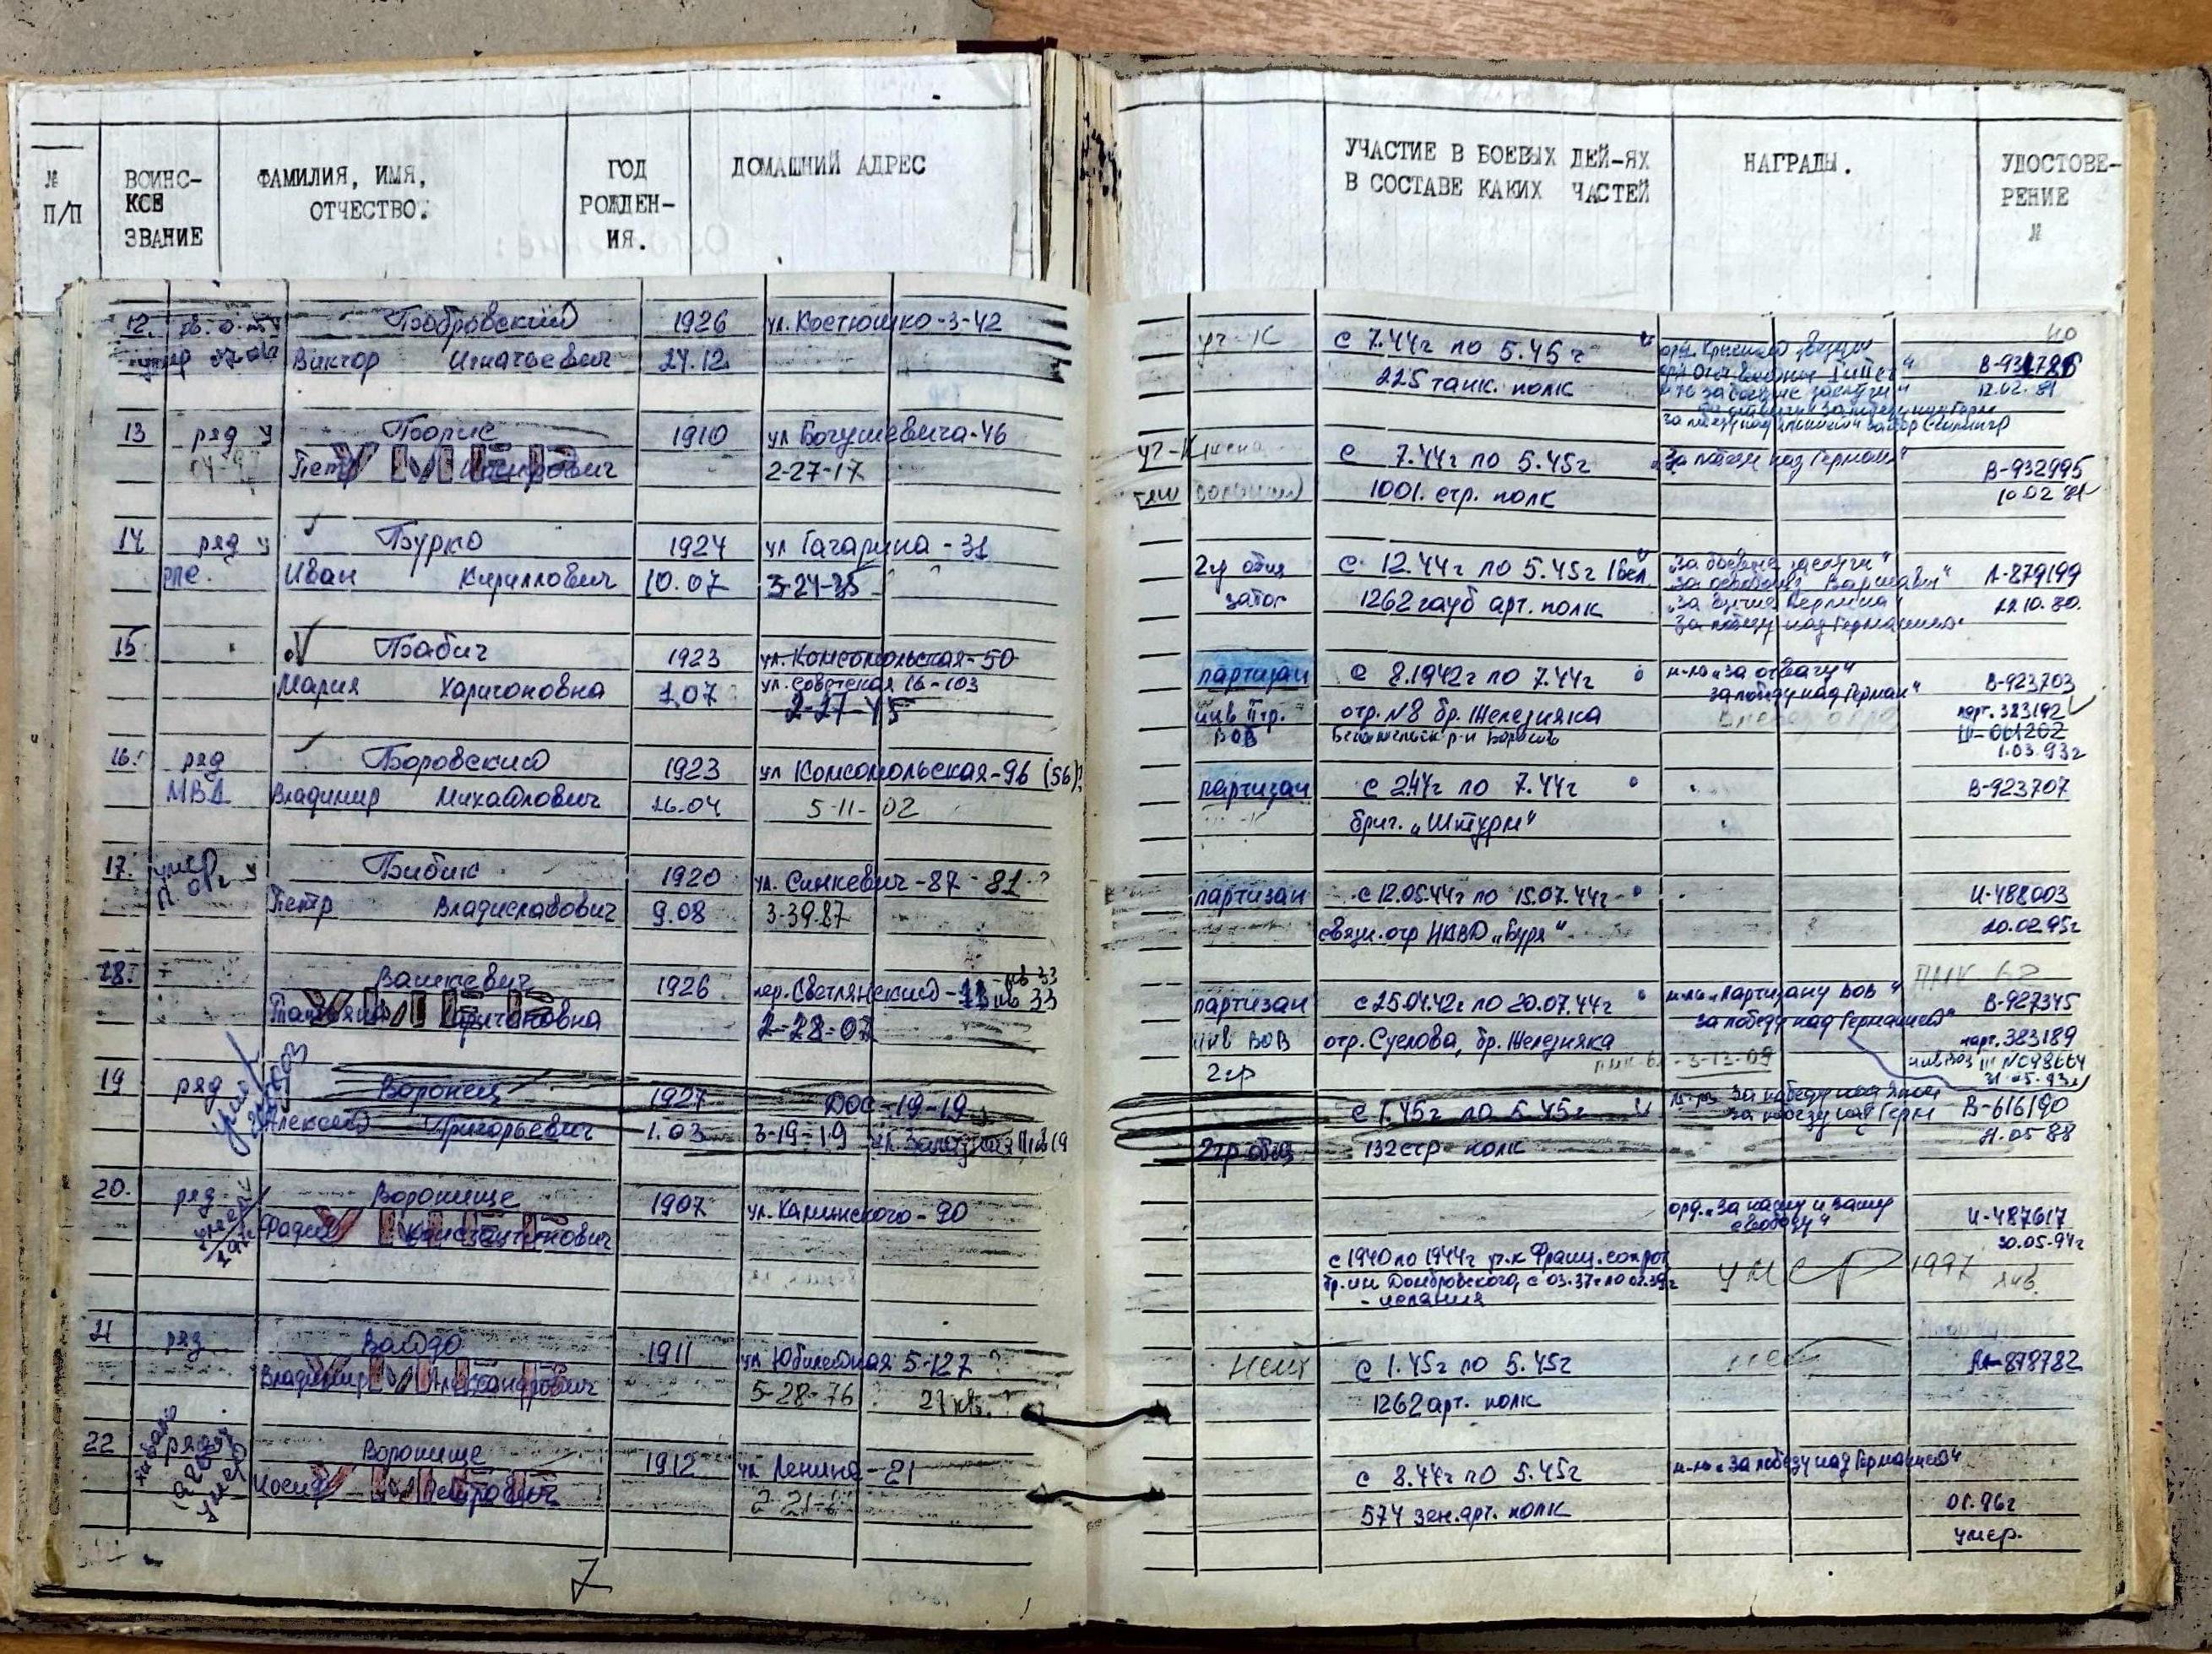 № П/П
ВОИНС-
КОЕ
ЗВАНИЕ
ФАМИЛИЯ, ИМЯ,
ОТЧЕСТВО.
ГОД
РОЖДЕН-
ИЯ.
ДОМАШНИЙ АДРЕС
УЧАСТИЕ В БОЕВЫХ ДЕЙ-ЯХ
В СОСТАВЕ КАКИХ ЧАСТЕЙ
НАГРАДЫ.
УДОСТОВЕ-
РЕНИЕ
№
12. Бобровский 1926 ул. Костюшко-3-42
умер Виктор Игнатьевич 27.12
уч-К с 7.44г по 5.45г
орд. Красной звезды
В-931786
225 танк. полк
12.02.81
13 ряд у Борис 1910 ул Богушевича-46
Петр УМЕР 2-27-17
уч-К с 7.44г по 5.45г "За победу над Герман" В-932995
1001. стр. полк 10.02 81
14 ряд у Бурко 1924 ул Гагарина-31
Иван Кириллович 10.07 3-24-35
2гр общ с 12.44г по 5.45г "За боевые заслуги" А-879199
"За освобожд Варшавы"
забол 1262 гауб арт. полк "За взятие Берлина" 22.10.80.
За победу над Германией
15 Бабич 1923 ул. Комсомольская-50
Мария Харитоновна 1.07 ул. Советская 16-103
2-27-45
партизан с 8.1942г по 7.44г м-ль "За отвагу"
за победу над Герман" В-923703
инв IIгр. отр. №8 бр. Железняка парт. 383192
ВОВ
1.03.93г
16. ряд Боровский 1923 ул Комсомольская-96 (56)?
МВД Владимир Михайлович 26.04 5-11-02
партизан с 2.44г по 7.44г В-923707
бриг. "Штурм"
17. умер Бибик 1920 ул. Синкевич-87 81?
Петр Владиславович 9.08 3-39.87
партизан с 12.05.44г по 15.07.44г И-488003
связн. отр НКВД "Буря" 20.02.95г
18. Вашкевич 1926 пер. Светлянский-11 кв 33
УМЕР Харитоновна 2-28-07
ПМК 62
партизан с 25.04.42г по 20.07.44г м-ль "Партизану ВОВ" В-927345
за победу над Германией"
инв ВОВ отр. Суслова, бр. Железняка парт. 383189
2гр 3-13-09
19 ряд Воронец 1927 ДОС-19-19
Алексей Григорьевич 1.03 3-19-19
с 1.45г по 5.45г За победу над Япон
За победу над Герм В-616190
2гр общ 132 стр полк 21.05 88
20. ряд Воронище 1907 ул. Калиновского-90
УМЕР Константинович
орд. "За нашу и вашу
свободу" И-487617
30.05.94г
с 1940 по 1944г уч.к Франц. сопрот
бр. им Домбровского, с 03.37г по 02.39г
- испания
умер 1997
янв.
21 ряд Вайдо 1911 ул Юбилейная 5-127
Владимир УМЕР Александрович 5-28-76 21 кв.?
Нет с 1.45г по 5.45г нет А-878782
1262 арт. полк
22 ряд Воронище 1912 ул Ленина-21
Иосиф УМЕР Петрович
умер
с 8.44г по 5.45г м-ль "За победу над Германией"
574 зен. арт. полк 01.96г
умер.
7